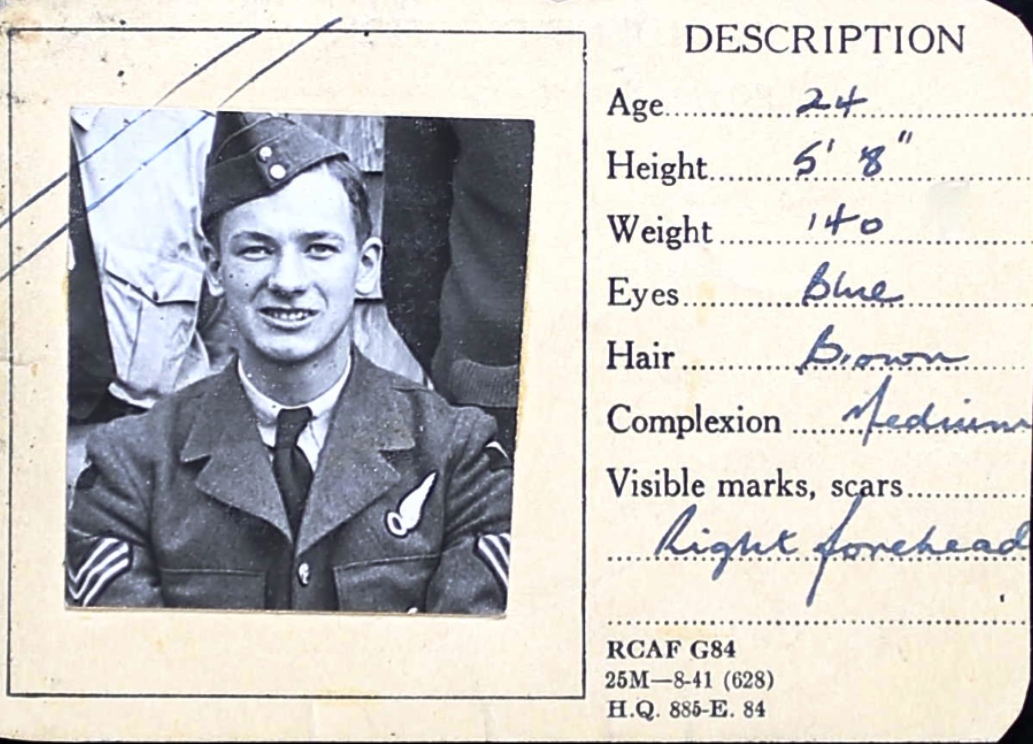 DESCRIPTION
Age 24
Height 5' 8"
Weight 140
Eyes Blue
Hair Brown
Complexion Medium
Visible marks, scars
Right forehead
RCAF G84
25M—8-41 (628)
H.Q. 885-E. 84